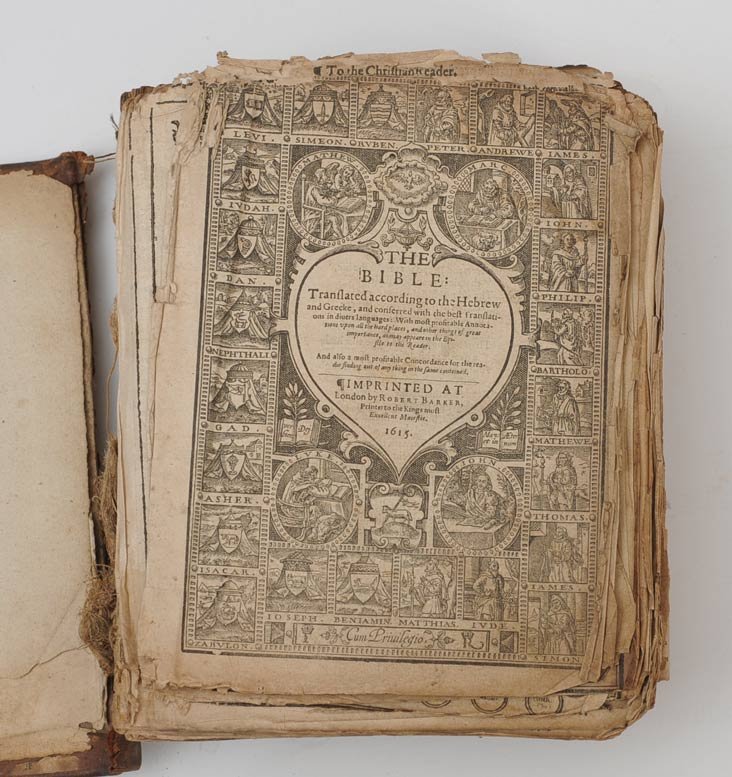 ¶ To the Christian Reader.
LEVI.
SIMEON.
RVBEN.
PETER
ANDREWE
IAMES.
MATHEW
MARKE
IVDAH.
IOHN.
DAN.
PHILIP.
NEPHTHALI
BARTHOLO.
GAD.
MATHEWE
ASHER.
THOMAS.
ISACAR.
IAMES.
ZABVLON.
SIMON
THE
BIBLE:
Translated according to the Hebrew
and Greeke, and conferred with the best Translati-
ons in divers languages: With most profitable Annota-
tions vpon all the hard places, and other things of great
importance, as may appeare in the Epi-
stle to the Reader.
And also a most profitable Concordance for the rea-
die finding out of any thing in the same conteined.
¶ IMPRINTED AT
London by ROBERT BARKER,
Printer to the Kings most
Excellent Maiestie.
1615.
LVKE
IOHN
IOSEPH.
BENIAMIN.
MATTHIAS.
IVDE
Cum Priuilegio.